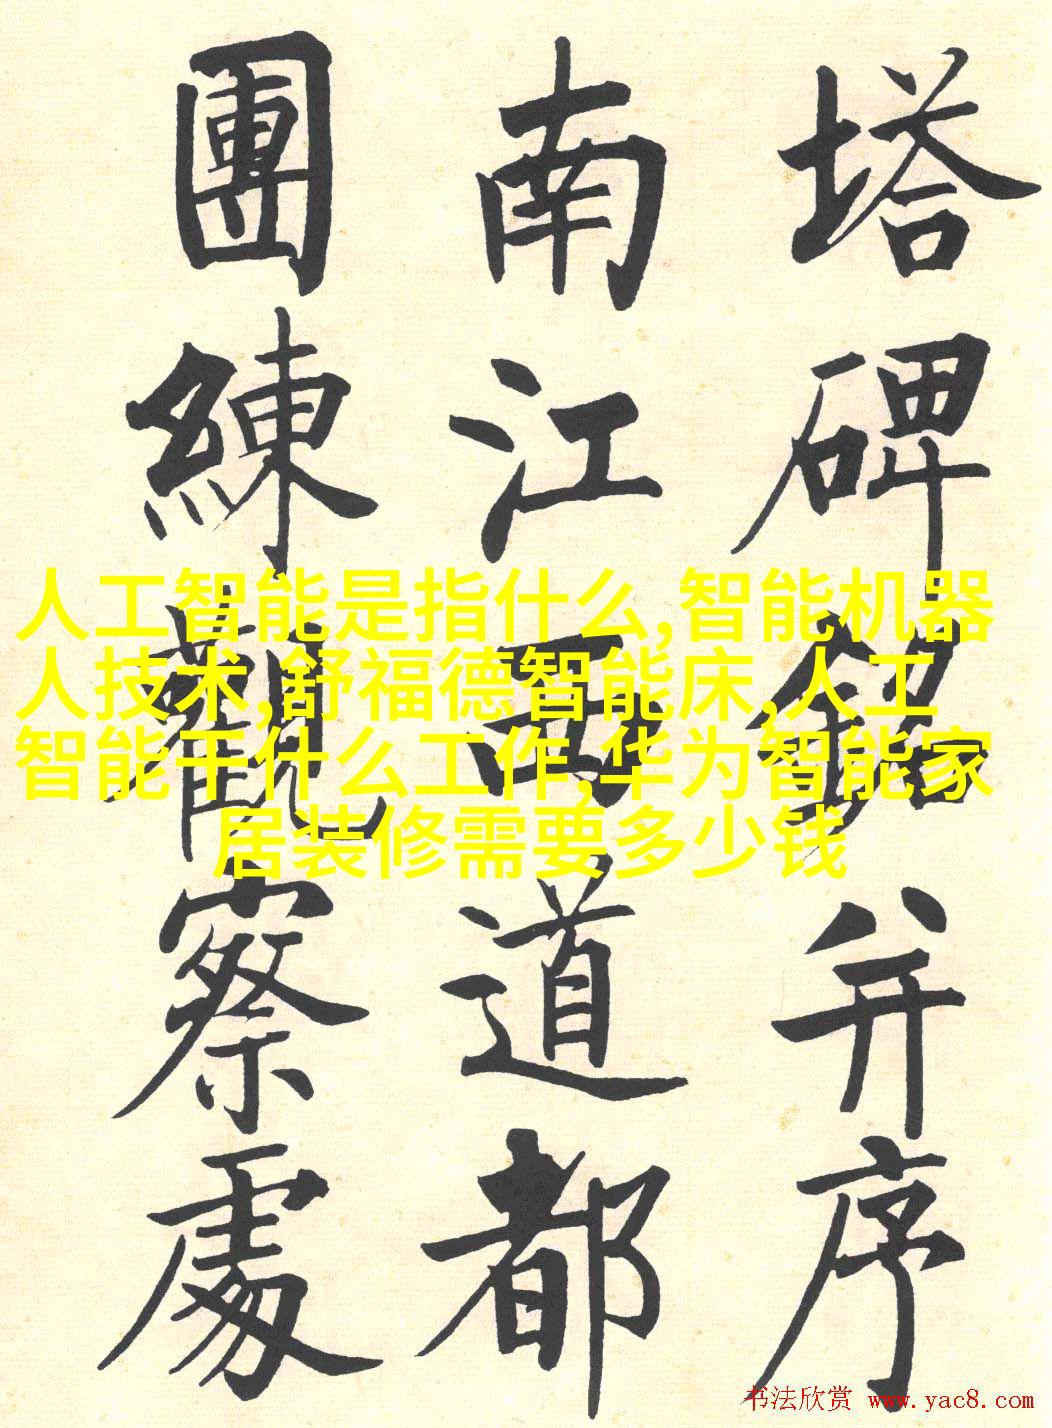 塔碑銘并序
南江西道都
團練觀察處
人工智能是指什么,智能机器
人技术,舒福德智能床,人工
智能干什么工作,华为智能家
居装修需要多少钱
书法欣赏 www.yac8.com